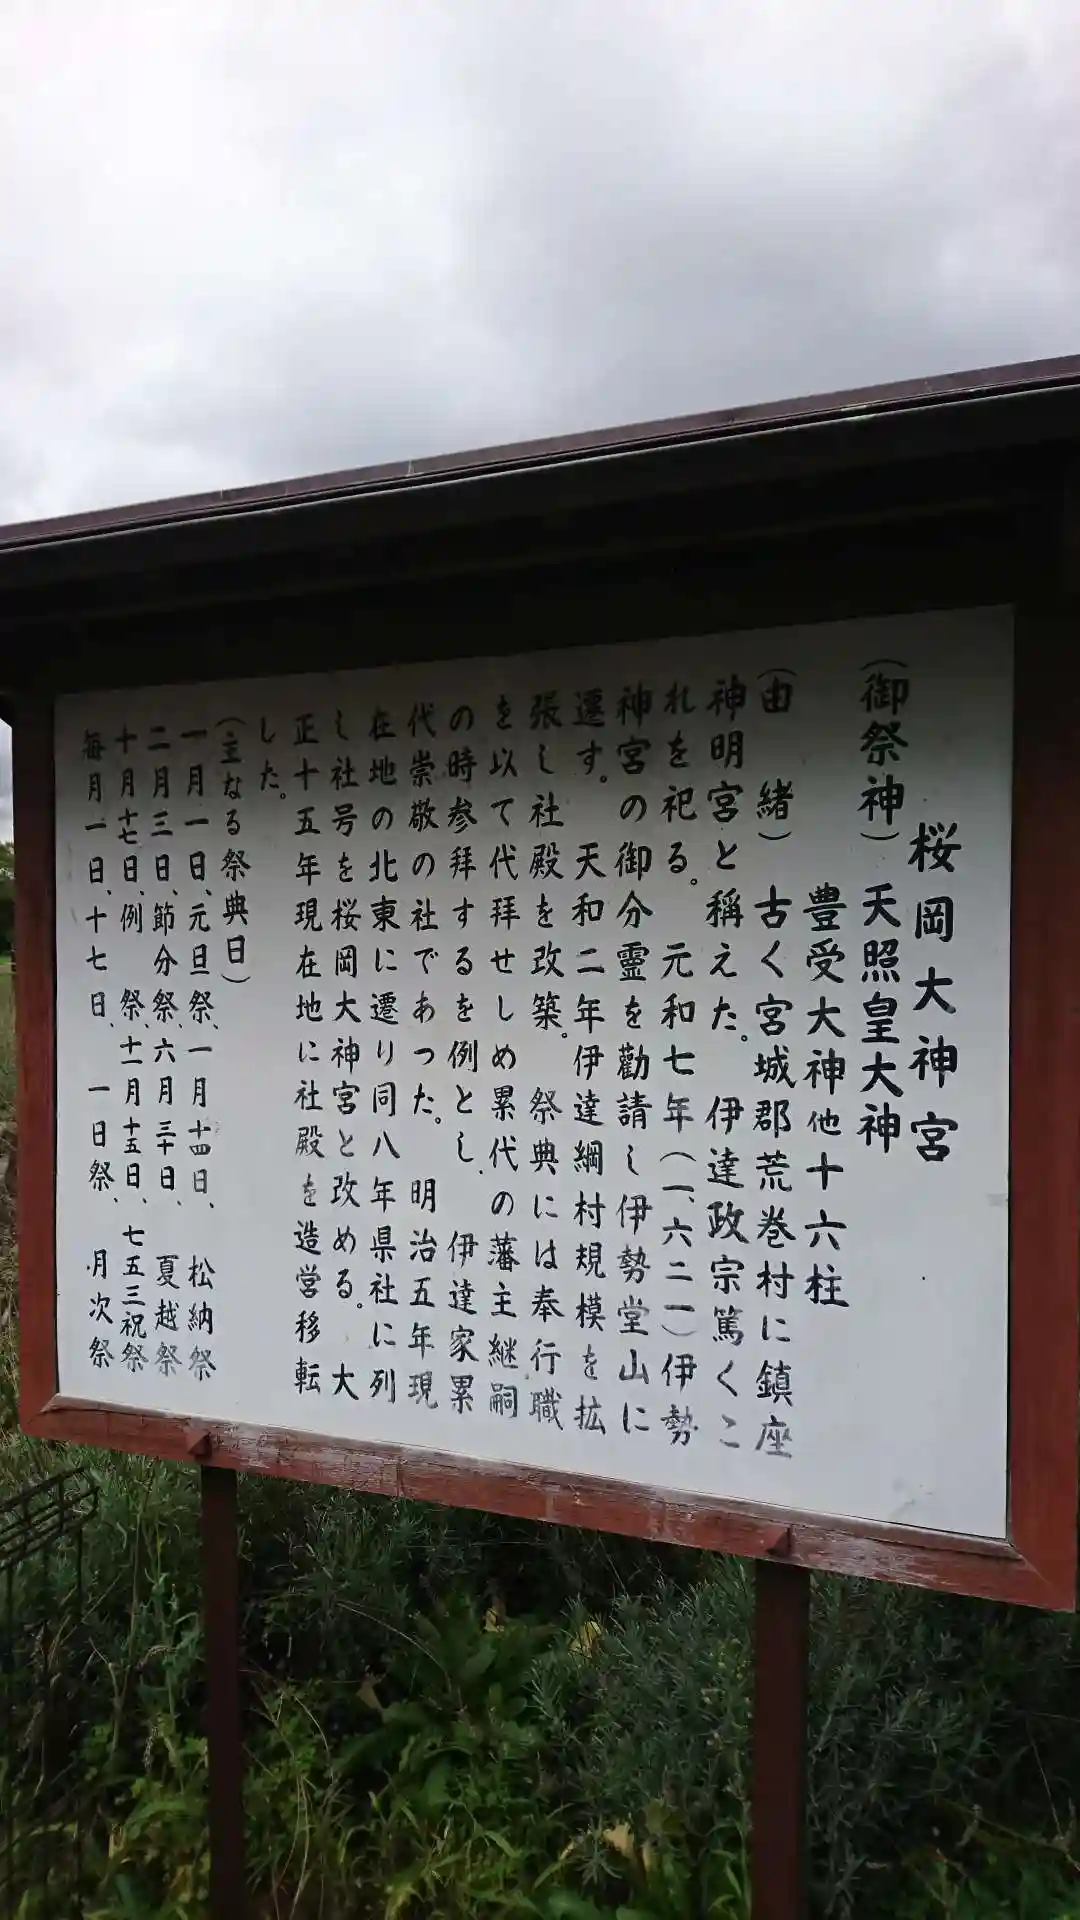 桜岡大神宮
(御祭神)天照皇大神
豊受大神他十六柱
(由 緒) 古く宮城郡荒巻村に鎮座
神明宮と稱えた。 伊達政宗篤くこ
れを祀る。 元和七年(一、六二一)伊勢
神宮の御分霊を勸請し伊勢堂山に
遷す。 天和二年伊達綱村規模を拡
張し社殿を改築。 祭典には奉行職
を以て代拝せしめ累代の藩主継嗣
の時参拝するを例とし、 伊達家累
代崇敬の社であった。 明治五年現
在地の北東に遷り同八年県社に列
し社号を桜岡大神宮と改める。 大
正十五年現在地に社殿を造営移転
した。
(主なる祭典日)
一月一日、元旦祭、一月十四日、 松納祭
二月三日、節分祭、六月三十日、 夏越祭
十月十七日、例 祭、十一月十五日、七五三祝祭
毎月、一日、十七日、 一日祭、 月次祭